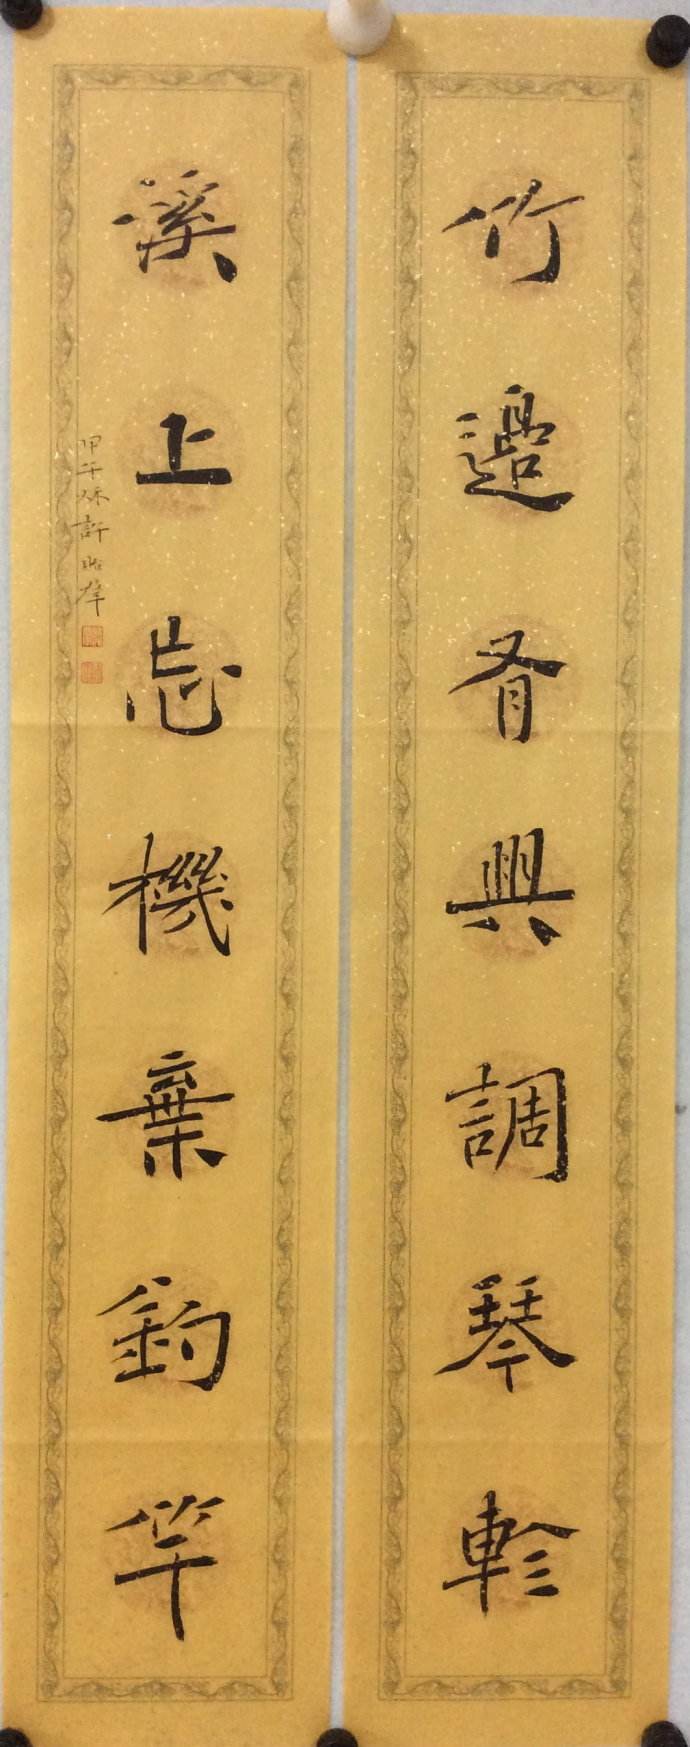 竹邊有興調琴軫
溪上忘機棄釣竿
甲午秋許昭葦